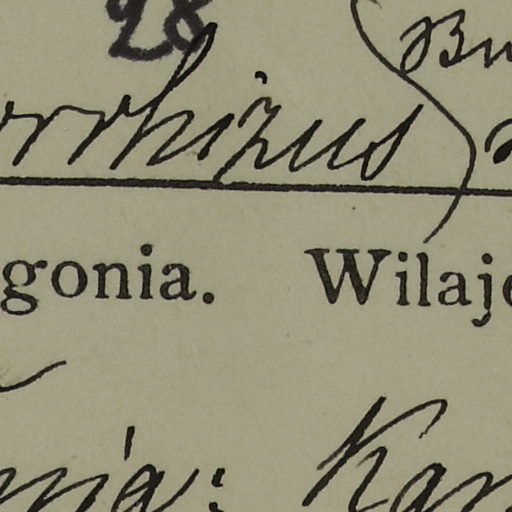 28
rrhizus Bu
gonia. Wilaje
nia: Kar